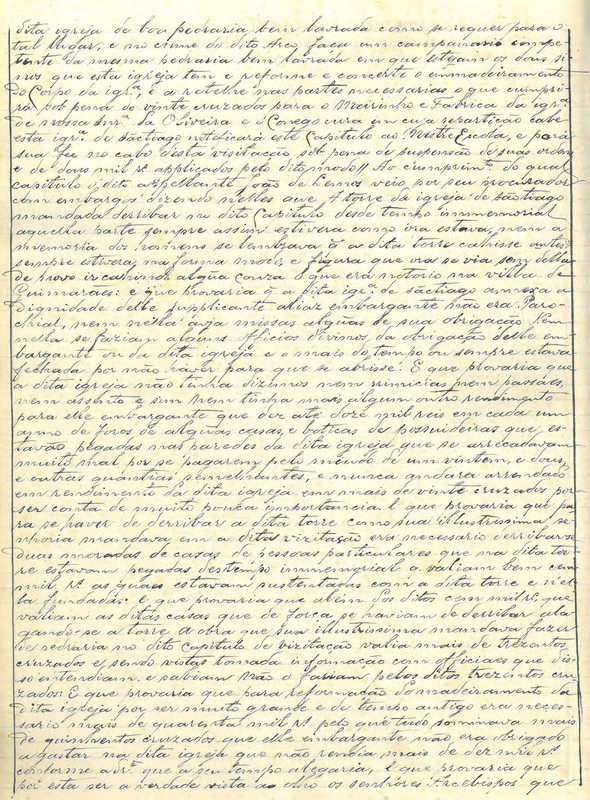 dita igreja de boa pedraria bem lavrada como se requer para o
tal lugar, e no cume do dito Arco faça um campanario compe-
tente da mesma pedraria bem lavrada em que estejam os dous si-
nos que esta igreja tem e reforme e concerte o emmadeiramento
do Corpo da igrª. e a retelhe nas partes necessarias o que cumpri-
rá sob pena de vinte cruzados para o Meirinho e Fabrica da igrª.
de nossa Snrª da Oliveira e o Conego cura em cuja repartição cabe
esta igrª. de sãctiago notificará este Capitulo ao Mestre Escolla, e pará
sua fee no cabo desta visitação sob pena de suspensão de suas ordens
e de dous mil rˢ. applicados pelo dito modo// Ao cumprimtº. do qual
capitulo o dito appellante João de Lemos veio por seu procurador
com embargos dizendo nelles que A torre da igreja de sãctiago
mandada derribar no dito Capitulo desde tempo immemorial
aquella parte sempre assim estivera como ora estava, nem a
memoria dos homens se lembrava q̃ a dita torre cahisse antes
sempre estivera na forma modo, e figura que ora se via sem della
de novo ir cahindo algũa couza o que era notorio na villa de
Guimarães: e que provaria q̃ a dita igrª. de sãctiago annexa a
Dignidade delle supplicante aliaz embargante não era Paro-
chial, nem nella avia missas algũas de sua obrigação Nem
nella se faziam alguns Officios Divinos da obrigação delle em-
bargante ou da dita igreja e o mais do tempo ou sempre estava
fechada por não haver para que se abrisse. E que provaria que
a dita igreja não tinha dizimos nem primicias, nem passaes,
nem assento e sim nem tinha mais algum outro rendimento
para elle embargante que dez até doze mil reis em cada um
anno de foros de algumas casas, e boticas de possuideiras que es-
tavão pegadas nas paredes da dita igreja que se arrecadavam
muito mal por se pagarem pelo miudo de um vintem, e dous,
e outras quantias semelhantes, e nunca andara arrendado
em rendimento da dita igreja em mais de vinte cruzados por
ser conta de muito pouca importancia. E que provaria que pa-
ra se haver de derribar a dita torre como sua illustrissima se-
nhoria mandava em a dita vizitação era necessario derribar-se
duas moradas de casas, de pessoas particulares que na dita tor-
re estavam pegadas des tempo immemorial q̃ valiam bem cem
mil rˢ. as quaes estavam sustentadas com a dita torre e nel-
la fundadas: E que provaria que alem dos ditos cem mil rˢ. que
valiam as ditas casas que de força se haviam de derribar ala-
gando-se a torre A obra que sua illustrissima mandava fazer
de pedraria no dito Capitulo de vizitação valia mais de trezentos
cruzados e, sendo vistas tomada informação com officiaes que dis-
so entendiam, e sabiam Não o fariam pelos ditos trezentos cru-
zados: E que provaria que para reformação do madeiramento da
dita igreja por ser muito grande e de tempo antigo era neces-
sario mais de quarenta mil rˢ. pelo que tudo sommava mais
de quinhentos cruzados que elle embargante não era obrigado
a gastar na dita igreja que não rendia mais de dez mil rˢ.
conforme a drº. que a seu tempo allegaria, E que provaria que
por esta ser a verdade vista ao olho os senhores Arcebispos que